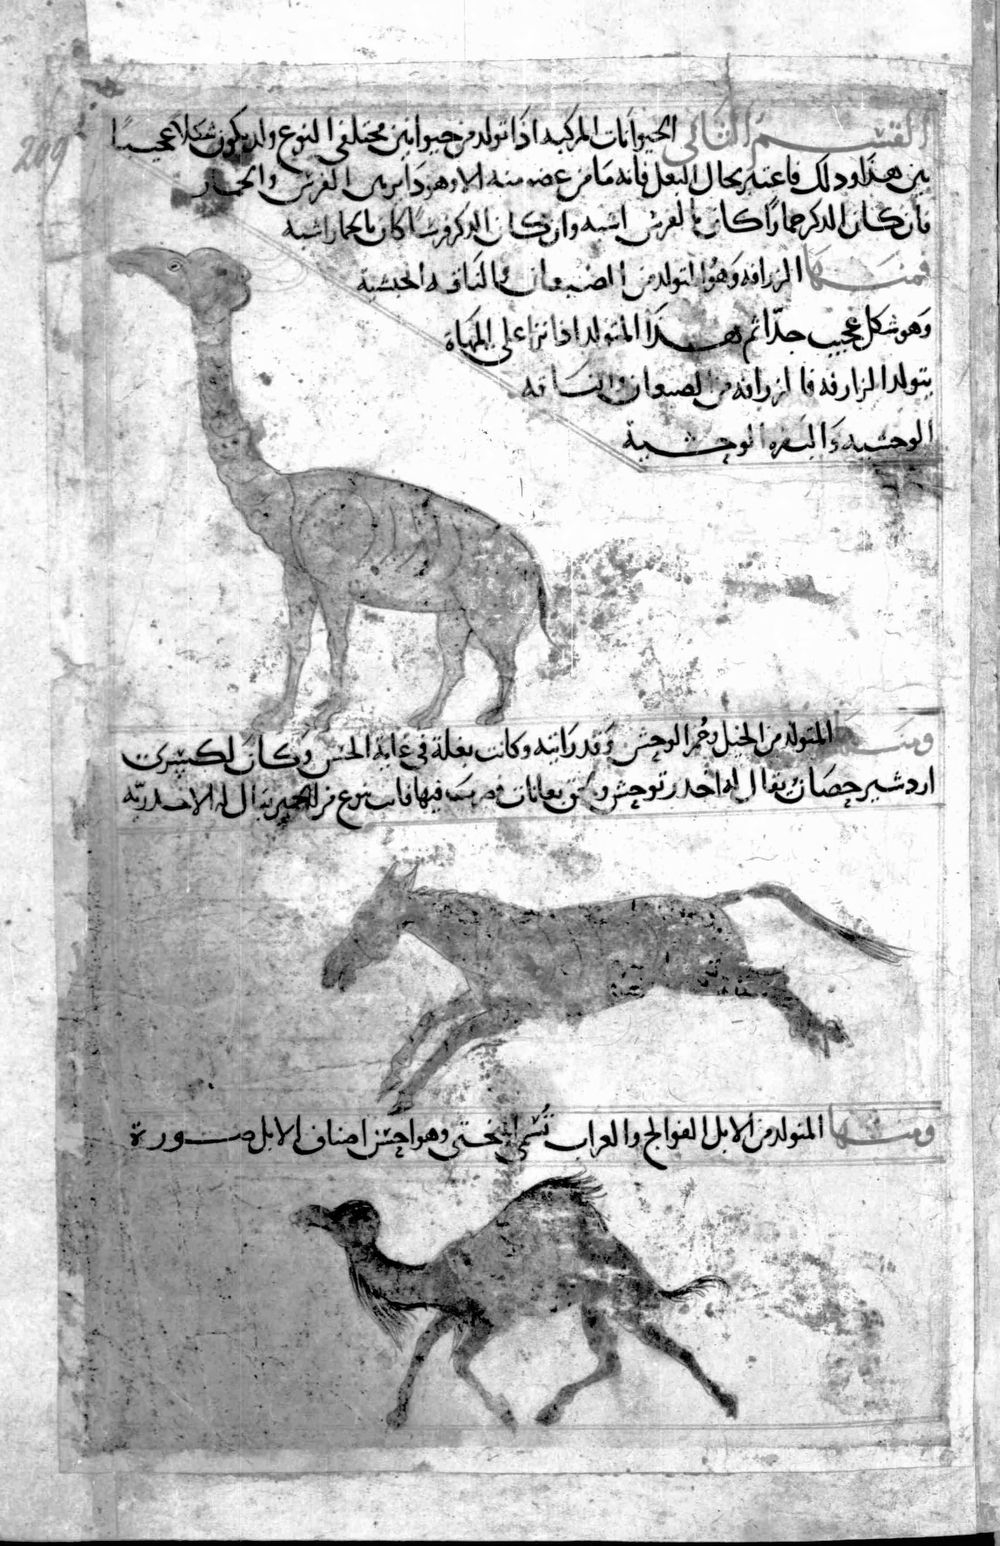 القسم الثاني الحيوانات المركبه اذا تولد من حيوانين مختلفي النوع ولد يكون شكلا عجيبا
بين هذا وذلك فاعتبر بحال البغل فانه ما من عضو منه الا وهو داير بين الفرس والحمار
فان كان الذكر حمارا كان بالفرس اشبه وان كان الذكر فرسا كان بالحمار اشبه
فمنها الزرافه وهو المتولد من الضبعان والناقه الحبشية
وهو شكل عجيب جدا ثم هذا المتولد اذا نزا على المهاة
يتولد الزرافه فالزرافه من الضبعان والناقه
الوحشيه والبقره الوحشية
ومنها المتولد من الخيل وحمر الوحش وقد راينه وكانت بغلة في غاية الحسن وكان لكسرى
اردشير حصان يقال له اخدر توحش و بعانات فضرب فيها فانتزع من الحمير يقال له الاخدريه
ومنها المتولد من الابل الفوالج والعراب تسمى البختى وهو احسن اصناف الابل صورة
209